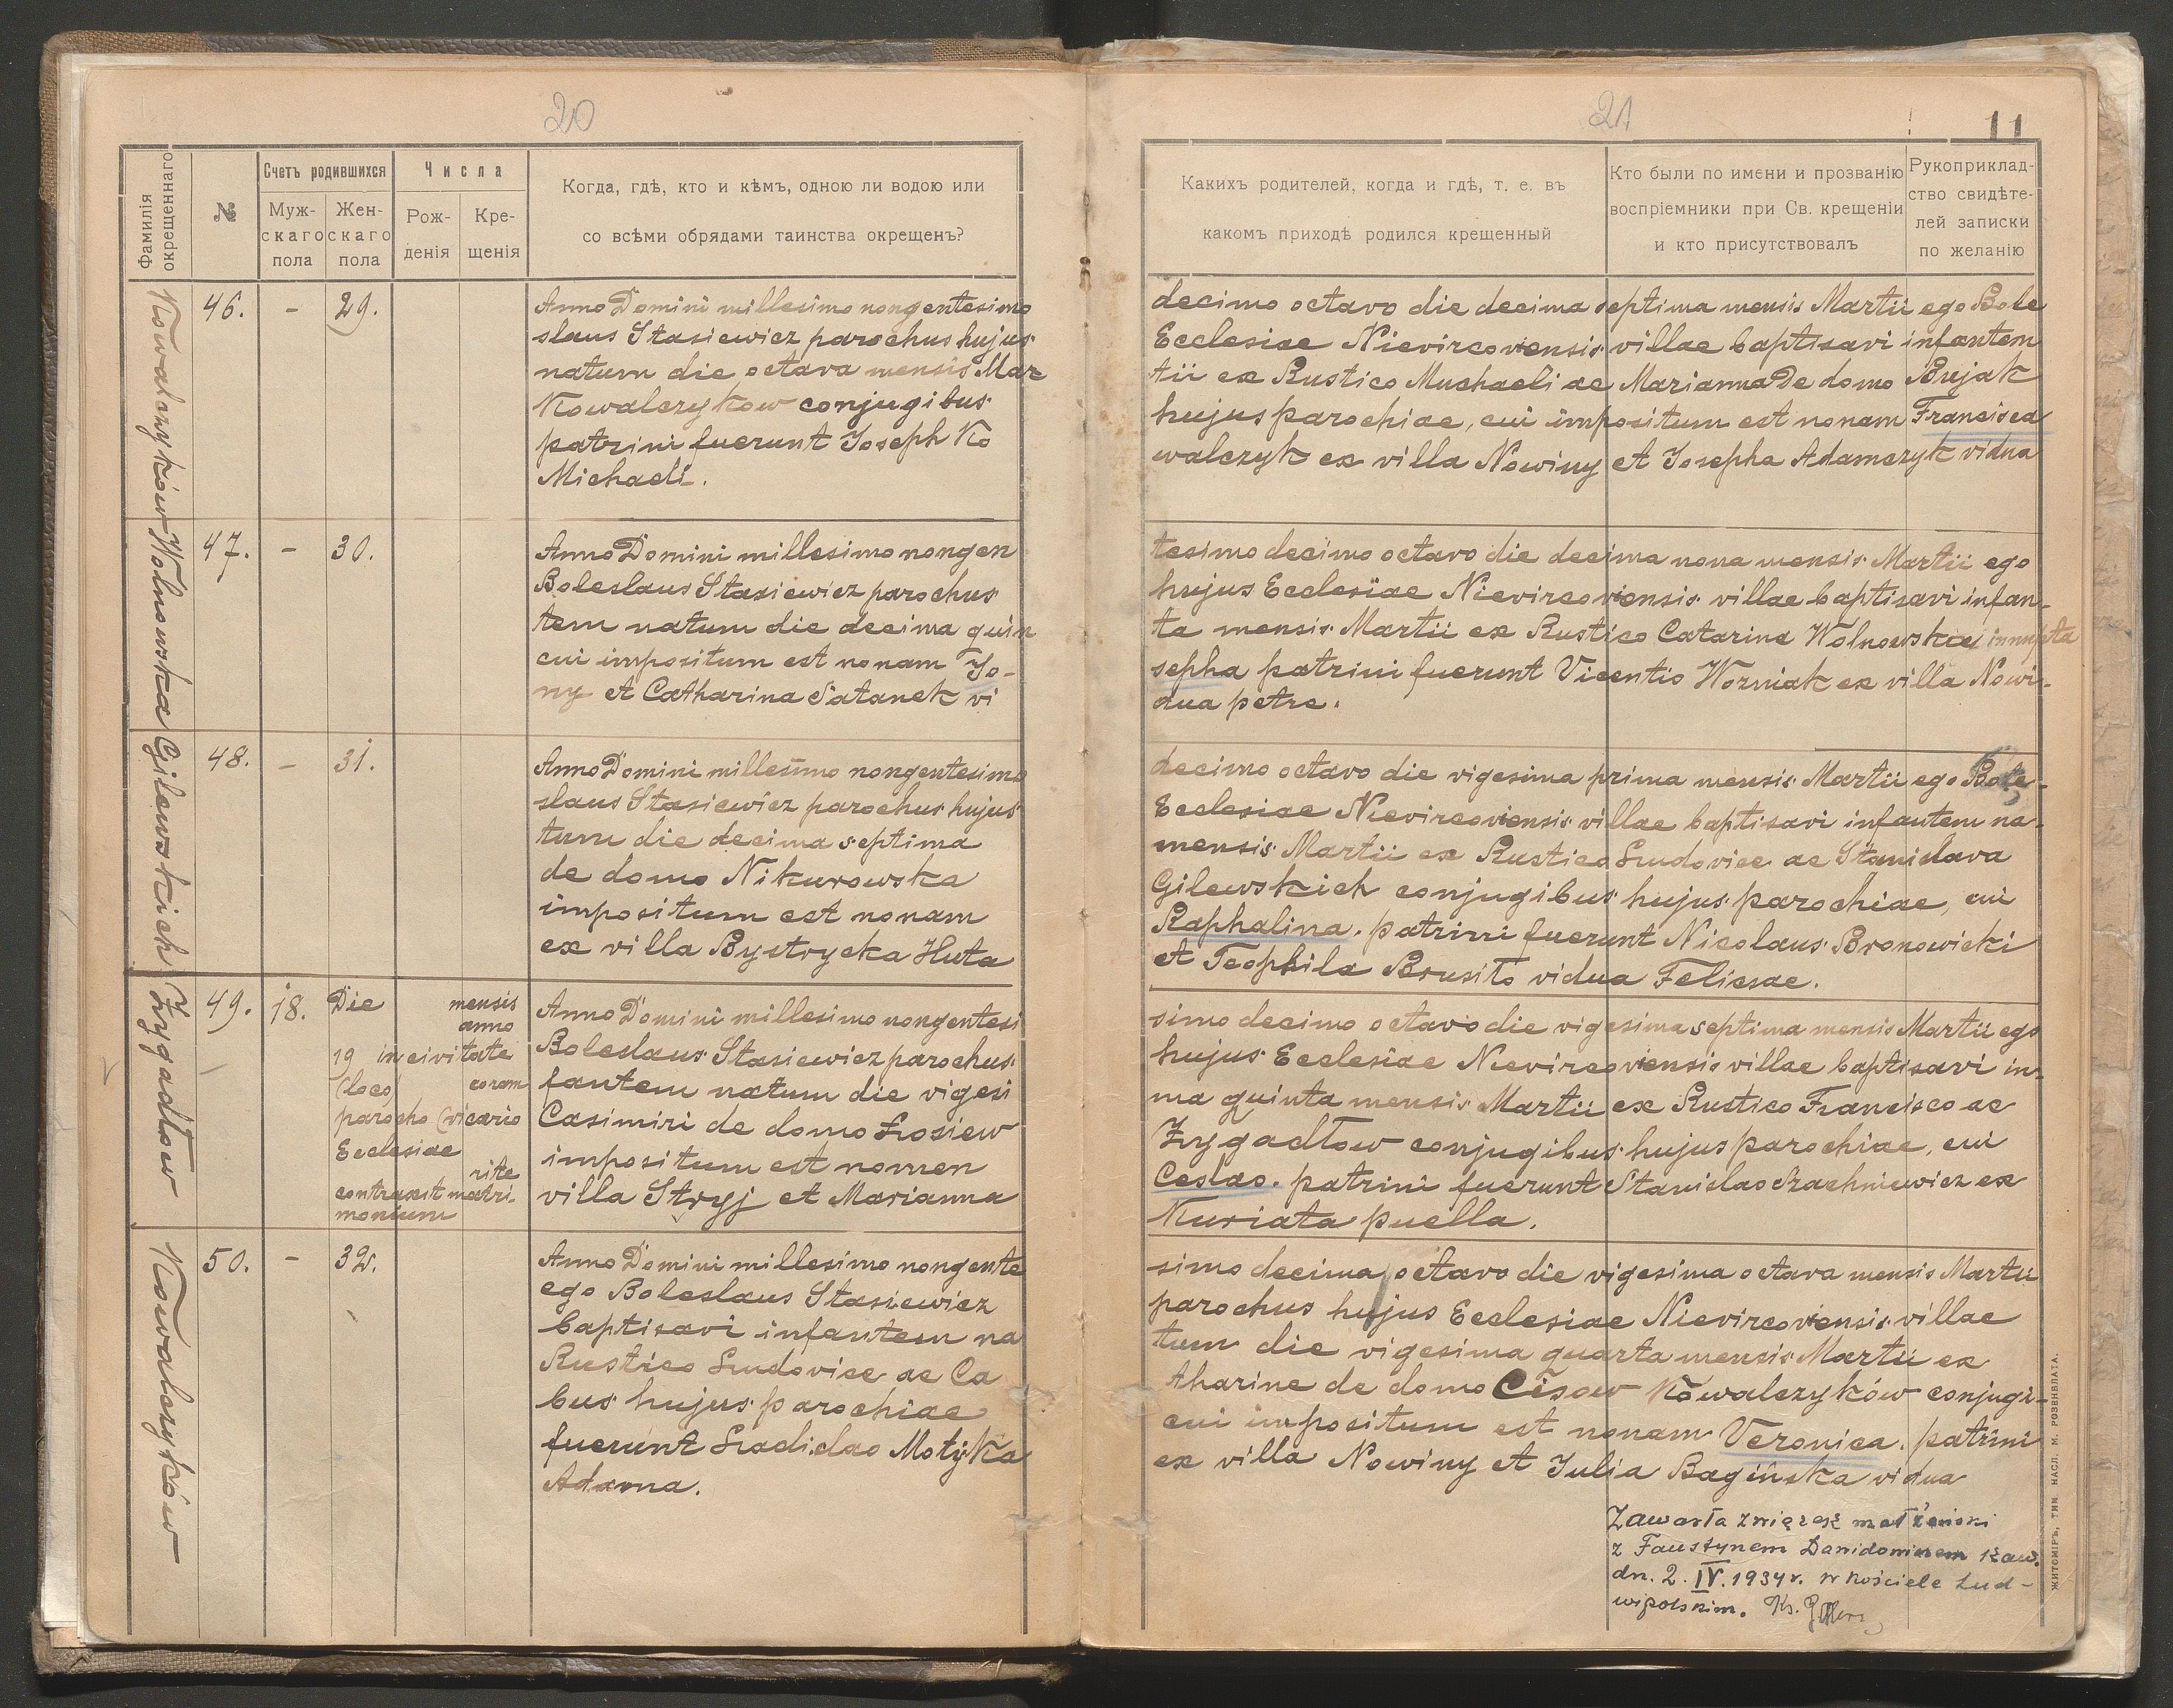 20
Фамилія окрещеннаго
№
Счетъ родившихся
Муж-
скаго
пола
Жен-
скаго
пола
Числа
Рож-
денія
Кре-
щенія
Когда, гдѣ, кто и кѣмъ, одною ли водою или
со всѣми обрядами таинства окрещенъ?
Kowalczyków
46.
-
29.
Anno Domini millesimo nongentesimo
slaus Stasiewicz parochus hujus
natum die octava mensis Mar
Kowalczykow conjugibus
patrini fuerunt Joseph Ko
Michaeli.
Wolnowska
47.
-
30.
Anno Domini millesimo nongen
Boleslaus Stasiewicz parochus
tem natum die decima quin
cui impositum est nonam Jo-
ny et Catharina Satanek vi
Gilewskich
48.
-
31.
Anno Domini millesimo nongentesimo
slaus Stasiewicz parochus hujus
tum die decima septima
de domo Nikurowska
impositum est nonam
ex villa Bystrycka Huta
Zygadłow
49.
18.
Die mensis
anno
19 in civitate
(loco) coram
parocho (vicario
Ecclesiae
rite
contraxit matri-
monium
Anno Domini millesimo nongentesi
Boleslaus Stasiewicz parochus
fantem natum die vigesi
Casimiri de domo Łosiew
impositum est nomen
villa Stryj et Marianna
Kowalczyków
50.
-
32.
Anno Domini millesimo nongente
ego Boleslaus Stasiewicz
baptisavi infantem na
Rustico Ludovice ac Ca
bus hujus parochiae
fuerunt Ladislao Motyka
Adama.
21
11
Какихъ родителей, когда и гдѣ, т. е. въ
какомъ приходѣ родился крещенный
Кто были по имени и прозванію
воспріемники при Св. крещеніи
и кто присутствовалъ
Рукоприклад-
ство свидѣте-
лей записки
по желанію
decimo octavo die decima septima mensis Martii ego Bole
Ecclesiae Nievircoviensis villae baptisavi infantem
tii ex Rustico Muchaeli ac Marianna De domo Bujak
hujus parochiae, cui impositum est nonam Francisca
walczyk ex villa Nowiny et Josepha Adamczyk vidua
tesimo decimo octavo die decima nona mensis Martii ego
hujus Ecclesiae Nievircoviensis villae baptisavi infan-
ta mensis Martii ex Rustico Catarina Wolnowska innupta
sepha patrini fuerunt Vicentio Wozniak ex villa Nowi-
dua petre.
decimo octavo die vigesima prima mensis Martii ego Bole-
Ecclesiae Nievircoviensis villae baptisavi infantem na-
mensis Martii ex Rustico Ludovice ac Stanislava
Gilewskich conjugibus hujus parochiae, cui
Raphalina. patrini fuerunt Nicolaus Bronowicki
et Teophila Brusiło vidua Felicsae.
simo decimo octavo die vigesima septima mensis Martii ego
hujus Ecclesiae Nievircoviensis villae baptisavi in-
ma quinta mensis Martii ex Rustico Francisco ac
Zygadłow conjugibus hujus parochiae, cui
Ceslao. patrini fuerunt Stanislao Szachniewicz ex
Kuriata puella.
simo decima octavo die vigesima octava mensis Martii
parochus hujus Ecclesiae Nievircoviensis villae
tum die vigesima quarta mensis Martii ex
tharine de domo Cisow Kowalczyków conjugi-
cui impositum est nonam Veronica. patrini
ex villa Nowiny et Julia Bagińska vidua
Zawarła związek małżeński
z Faustynem Dawidowiczem kaw.
dn. 2. IV. 1934 r. w kościele Lud-
wipolskim. Ks.
ЖИТОМІРЪ, ТИП. НАСЛ. М. РОЗЕНБЛАТА.